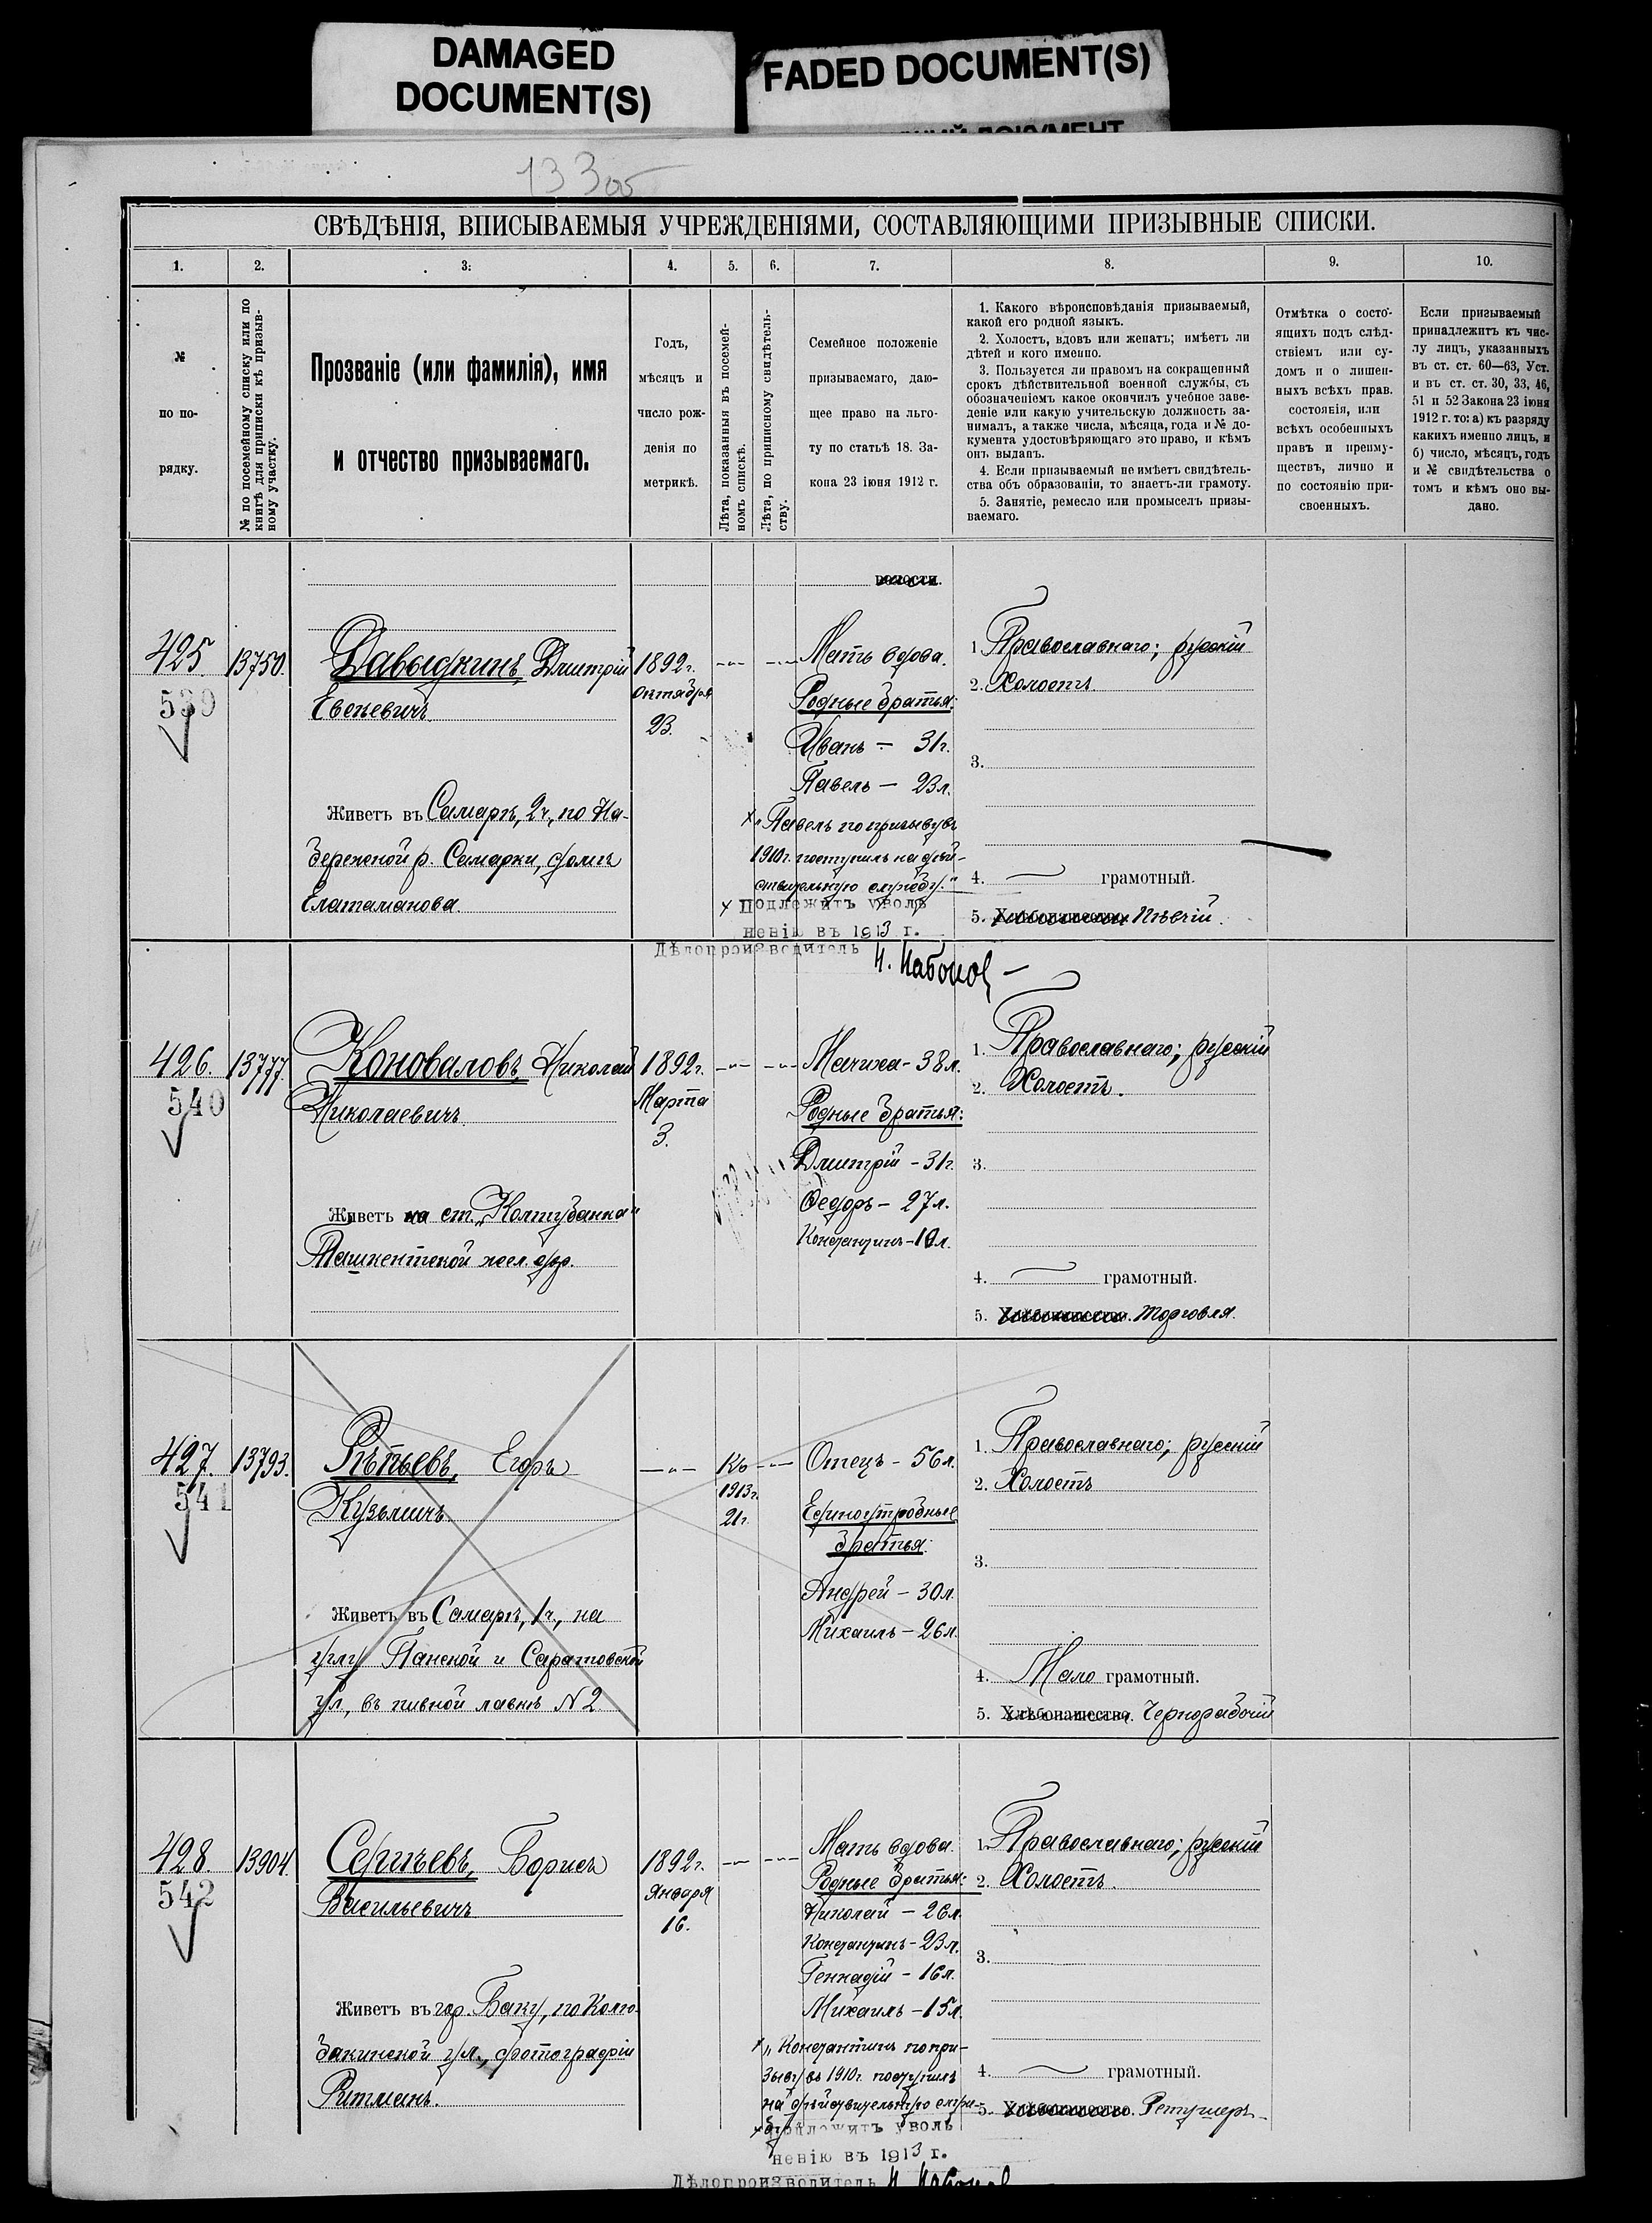 DAMAGED
DOCUMENT(S)
FADED DOCUMENT(S)
СВѢДѢНІЯ, ВПИСЫВАЕМЫЯ УЧРЕЖДЕНІЯМИ, СОСТАВЛЯЮЩИМИ ПРИЗЫВНЫЕ СПИСКИ.
1.
2.
3.
4.
5.
6.
7.
8.
9.
10.
№
по по-
рядку.
№ по посемейному списку или по
книгѣ для приписки къ призыв-
ному участку.
Прозваніе (или фамилія), имя
и отчество призываемаго.
Годъ,
мѣсяцъ и
число рож-
денія по
метрикѣ.
Лѣта, показанныя въ посемей-
номъ спискѣ.
Лѣта, по приписному свидѣтель-
ству.
Семейное положеніе
призываемаго, даю-
щее право на льго-
ту по статьѣ 18. За-
кона 23 іюня 1912 г.
1. Какого вѣроисповѣданія призываемый,
какой его родной языкъ.
2. Холостъ, вдовъ или женатъ; имѣетъ ли
дѣтей и кого именно.
3. Пользуется ли правомъ на сокращенный
срокъ дѣйствительной военной службы, съ
обозначеніемъ какое окончилъ учебное заве-
деніе или какую учительскую должность за-
нималъ, а также числа, мѣсяца, года и № до-
кумента удостовѣряющаго это право, и кѣмъ
онъ выданъ.
4. Если призываемый не имѣетъ свидѣтель-
ства объ образованіи, то знаетъ-ли грамоту.
5. Занятіе, ремесло или промыселъ призы-
ваемаго.
Отмѣтка о состо-
ящихъ подъ слѣд-
ствіемъ или су-
домъ и о лишен-
ныхъ всѣхъ прав.
состоянія, или
всѣхъ особенныхъ
правъ и преиму-
ществъ, лично и
по состоянію при-
своенныхъ.
Если призываемый
принадлежитъ къ чис-
лу лицъ, указанныхъ
въ ст. ст. 60—63, Уст.
и въ ст. ст. 30, 33, 46,
51 и 52 Закона 23 іюня
1912 г. то: а) къ разряду
какихъ именно лицъ, и
б) число, мѣсяцъ, годъ
и № свидѣтельства о
томъ и кѣмъ оно вы-
дано.
волости.
425.
539
13750.
Давыдкинъ, Дмитрій
Евсеевичъ
Живетъ въ Самарѣ, 2ч., по На-
бережной р. Самарки, домъ
Елатоманова.
1892г.
Октября
23.
Мать вдова.
Родные братья:
Иванъ — 31г.
Павелъ — 23л.
× „Павелъ по призыву въ
1910г. поступилъ на дѣй-
ствительную службу.“
× Подлежитъ уволь
ненію въ 1913 г.
Дѣлопроизводитель
1. Православнаго; русскій
2. Холостъ.
3.
4. грамотный.
5. Хлѣбопашество. Пѣвчій.
426.
540
13777.
Коноваловъ, Николай
Николаевичъ.
Живетъ на ст. „Колтубанка“
Ташкентской жел. дор.
1892г.
Марта
3.
Мачиха - 38л.
Родные братья:
Дмитрій - 31г.
Федоръ - 27л.
1. Православнаго; русскій
2. Холостъ.
3.
4. грамотный.
5. Хлѣбопашество. Торговля.
427.
541
13793.
Рѣпьевъ, Егоръ
Кузьмичъ.
Живетъ въ Самарѣ, 1ч., на
углу Панской и Саратовской
ул., въ пивной лавкѣ N 2
Къ
1913г.
21г.
Отецъ - 56л.
Единоутробные
братья:
Андрей - 30л.
Михаилъ - 26л.
1. Православнаго; русскій
2. Холостъ
3.
4. Мало грамотный.
5. Хлѣбопашество. Чернорабочій
428.
542
13904.
Сергѣевъ, Борисъ
Васильевичъ
Живетъ въ гор. Баку, по Колю-
бакинской ул., фотографіи
Ритманъ.
1892г.
Января
16.
Мать вдова.
Родные братья:
Николай - 26л.
Константинъ - 23л.
Геннадій - 16л.
Михаилъ - 15л.
× „Константинъ по при-
зыву въ 1910г. поступилъ
на дѣйствительную служ-
бу“
× Подлежитъ уволь
ненію въ 1913 г.
Дѣлопроизводитель
1. Православнаго; русскій
2. Холостъ.
3.
4. грамотный.
5. Хлѣбопашество. Ретушеръ